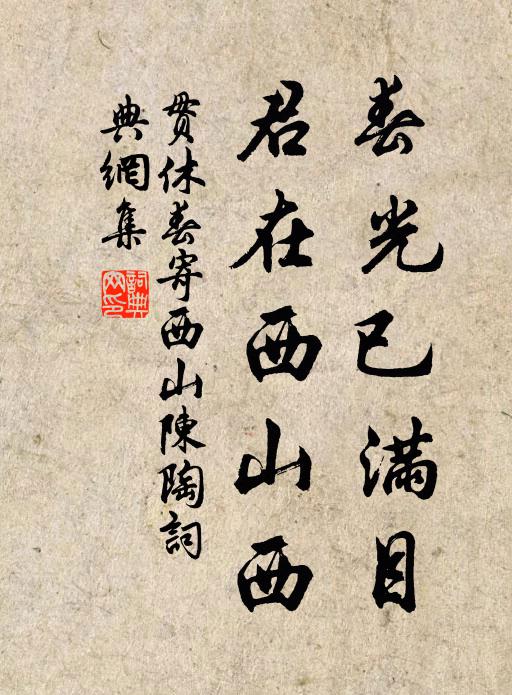 春光已滿目
君在西山西
貫休春寄西山陳陶詞
典網集
詞典網印